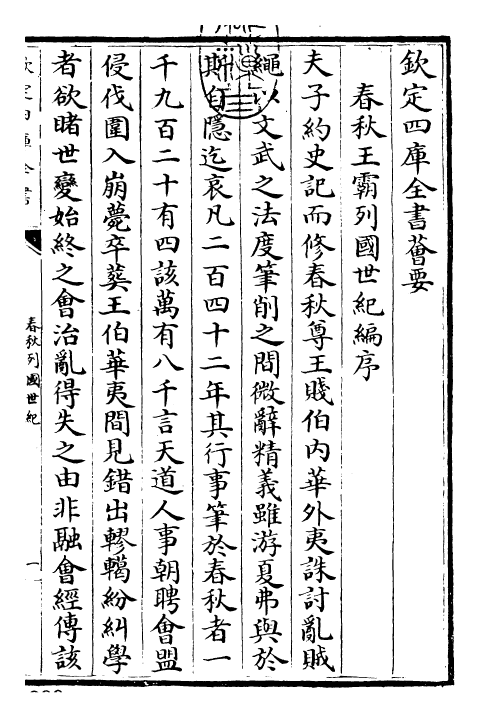 欽定四庫全書薈要
春秋王霸列國世紀編序
夫子約史記而修春秋尊王賤伯内華外夷誅討亂賊
繩以文武之法度筆削之間微辭精義雖游夏弗與於
斯自隱迄哀凡二百四十二年其行事筆於春秋者一
千九百二十有四該萬有八千言天道人事朝聘會盟
侵伐圍入崩薨卒葬王伯華夷間見錯出轇轕紛糾學
者欲睹世變始終之會治亂得失之由非融會經傳該
欽定四庫全書
春秋列國世紀
一